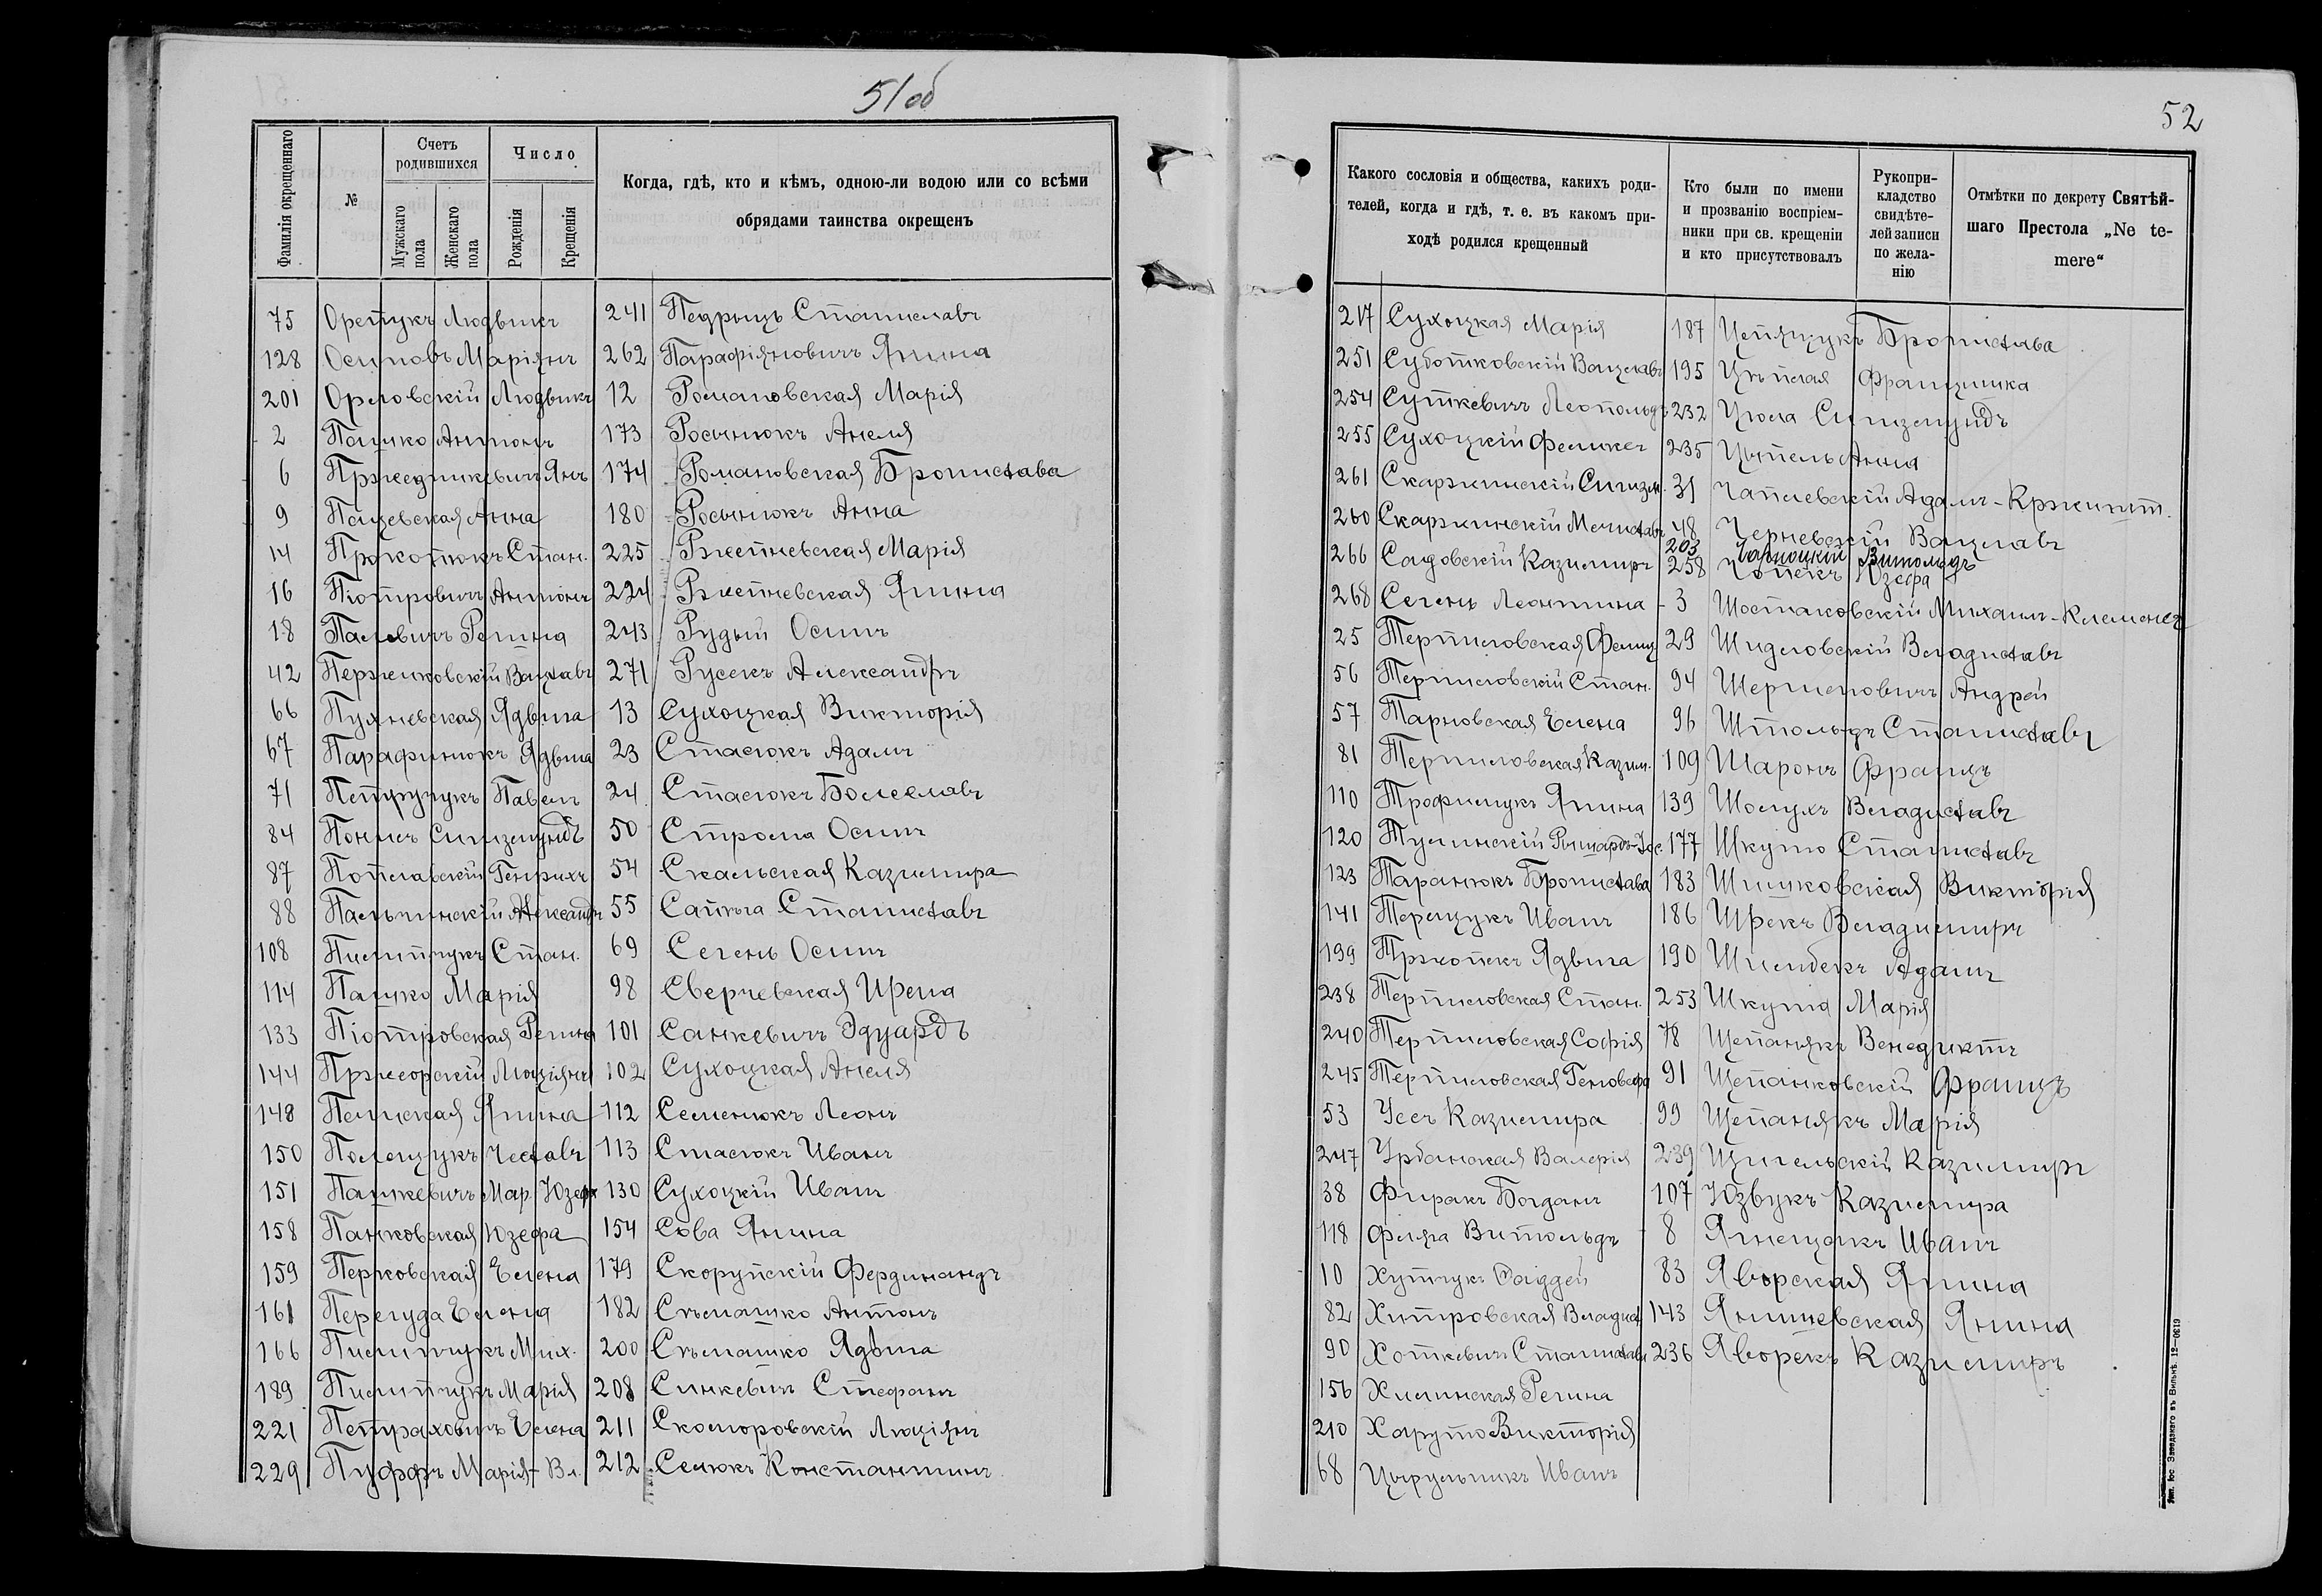 51об
Фамилія окрещеннаго
№
Счетъ родившихся
Мужскаго пола
Женскаго пола
Число
Рожденія
Крещенія
Когда, гдѣ, кто и кѣмъ, одною-ли водою или со всѣми
обрядами таинства окрещенъ
75 Орепукъ Людвикъ
128 Осиповъ Маріянъ
201 Орловскій Людвикъ
2 Пашко Антонъ
6 Пржедпикевичъ Янъ
9 Пацевская Анна
14 Прокопюкъ Стан.
16 Піотровичъ Антонъ
18 Палевичъ Регина
42 Пержиковскій Вацлавъ
66 Пухневская Ядвига
67 Парафинюкъ Ядвига
71 Петручукъ Павелъ
84 Понисъ Сигизмундъ
87 Поплавскій Генрихъ
88 Пальчинскій Александръ
108 Пилипчукъ Стан.
114 Пашко Марія
133 Піотровская Регина
144 Пржеорскій Люціянъ
148 Пешская Янина
150 Полещукъ Чеславъ
151 Пашкевичъ Мар. Юзефа
158 Панковская Юзефа
159 Перковская Елена
161 Перегуда Елена
166 Пилипчукъ Мих.
189 Пилипчукъ Марія
221 Петраховичъ Елена
229 Пуффъ Марія-Вл.
241 Педрыцъ Станиславъ
262 Парафіяновичъ Янина
12 Романовская Марія
173 Росынюкъ Анеля
174 Романовская Брониславa
180 Росынюкъ Анна
225 Ржепневская Марія
224 Ржепневская Янина
243 Рудый Осипъ
271 Русекъ Александръ
13 Сухоцкая Викторія
23 Стасюкъ Адамъ
24 Стасюкъ Болеславъ
50 Строма Осипъ
54 Скальская Казимира
55 Сапѣга Станиславъ
69 Сегень Осипъ
98 Сверчевская Ирена
101 Санкевичъ Эдуардъ
102 Сухоцкая Анеля
112 Семенюкъ Леонъ
113 Стасюкъ Иванъ
130 Сухоцкій Иванъ
154 Сова Янина
179 Скорупскій Фердинандъ
182 Съмашко Антонъ
200 Съмашко Ядвига
208 Синкевичъ Стефанъ
211 Скоморовскій Люціянъ
212 Семюкъ Константинъ
52
Какого сословія и общества, какихъ роди-
телей, когда и гдѣ, т. е. въ какомъ при-
ходѣ родился крещенный
Кто были по имени
и прозванію воспріем-
ники при св. крещеніи
и кто присутствовалъ
Рукопри-
кладство
свидѣте-
лей записи
по жела-
нію
Отмѣтки по декрету Святѣй-
шаго Престола „Ne te-
mere“
217 Сухоцкая Марія
251 Суботковскій Вацлавъ
254 Суткевичъ Леопольдъ
255 Сухоцкій Феликсъ
261 Скаржинскій Сигизм.
260 Скаржинскій Мечиславъ
266 Садовскій Казимиръ
268 Сегень Леонтина
25 Терпиловская Фелиц
56 Терпиловскій Стан.
57 Тарновская Елена
81 Терпиловская Казим.
110 Трофимукъ Янина
120 Тулинскій Рышардъ-Іос.
123 Таранюкъ Бронислава
141 Терещукъ Иванъ
199 Тржопекъ Ядвига
238 Терпиловская Стан.
240 Терпиловская Софія
245 Терпиловская Геновефа
53 Уссъ Казимира
247 Урбанская Валерія
38 Фиракъ Богданъ
118 Филяга Витольдъ
10 Хутчукъ Фаддей
82 Хитровская Владисл
90 Хоткевичъ Станиславъ
156 Хилинская Регина
210 Харуто Викторія
68 Цырульникъ Иванъ
187 Цепящукъ Бронислава
195 Цѣплая Францишка
232 Цюла Сигизмундъ
235 Цыпель Анна
31 Чаплевскій Адамъ-Кржишт.
48 Черневскій Вацлавъ
203 Чарноцкій Витольдъ
258 Чопекъ Юзефа
3 Шостаковскій Михаилъ-Клеменсъ
29 Шидловскій Владиславъ
94 Шерменовичъ Андрей
96 Штольдъ Станиславъ
109 Шаронъ Францъ
139 Шолухъ Владиславъ
177 Шкуто Станиславъ
183 Шишковская Викторія
186 Шрекъ Владимиръ
190 Шимбекъ Адамъ
253 Шкута Марія
78 Щепанякъ Бенедиктъ
91 Щепанковскій Францъ
99 Щепанякъ Марія
239 Щигельскій Казимиръ
107 Юзвукъ Казимира
8 Ягнещакъ Иванъ
83 Яворская Янина
143 Янишевская Янина
236 Яворекъ Казимиръ
Тип. Іос. Завадзкаго въ Вильнѣ. 12—0619